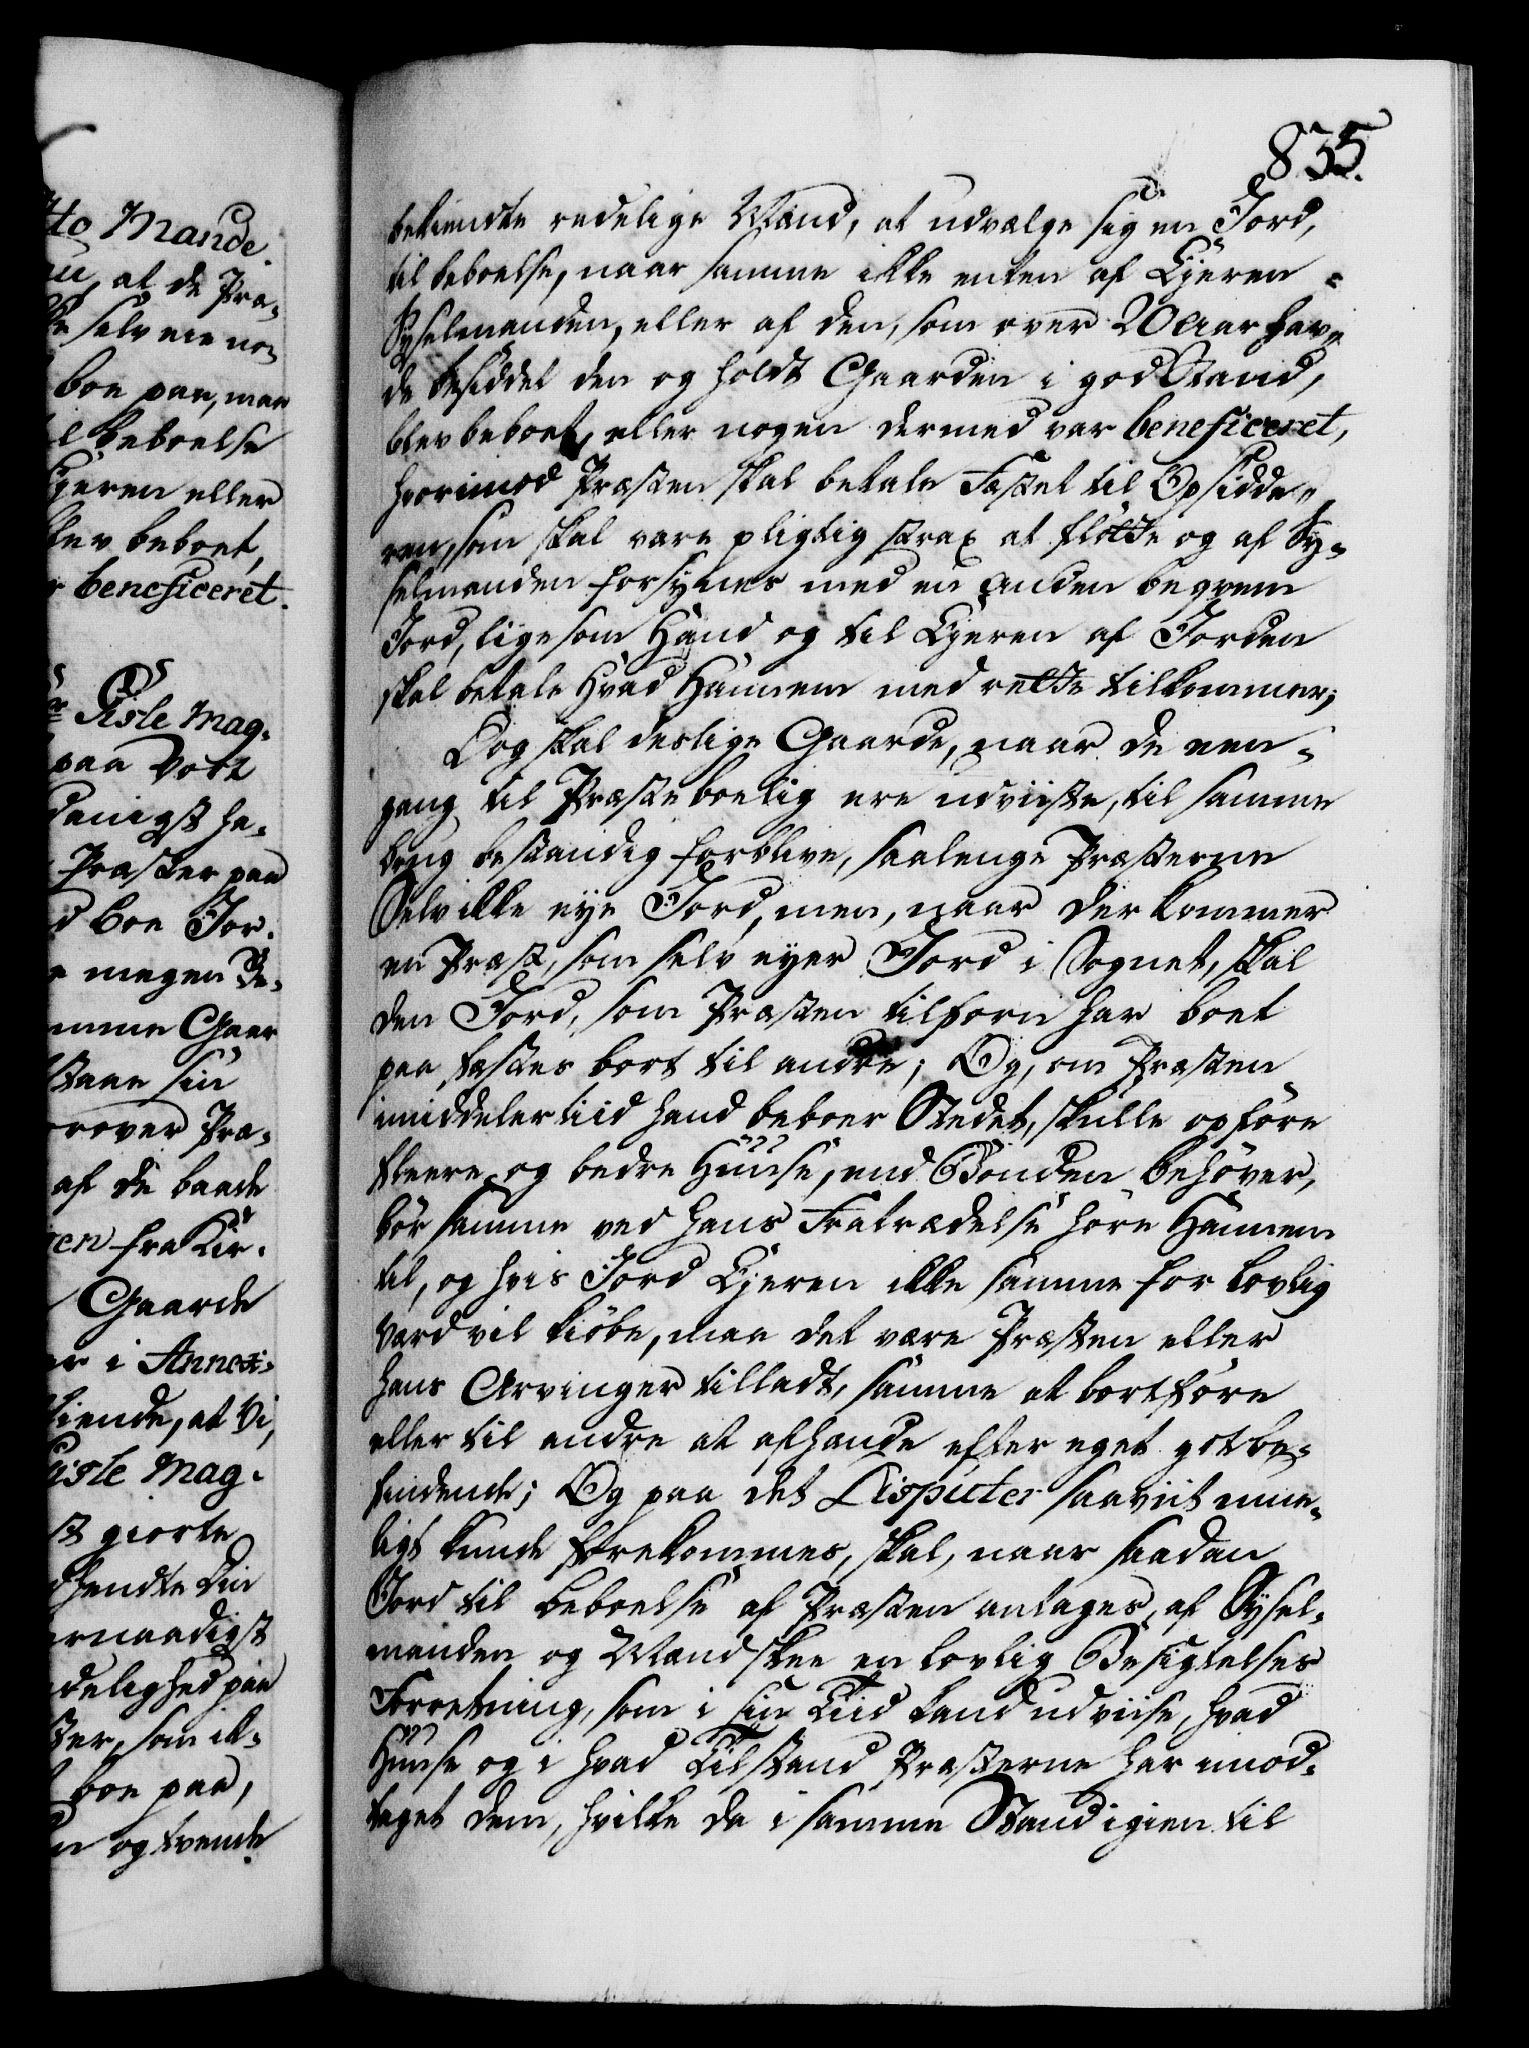 835.
bekiendte redelige Mænd, at udvælge sig en Jord,
til beboelse, naar samme ikke enten af Ejeren
Sysselmanden, eller af den, som over 20 Aar hav-
de besiddet den og holdt Gaarden i god Stand,
blev beboet, eller nogen dermed var beneficeret,
hvorimod Præsten skal betale Fæstet til Opsidde-
ren, som skal være pligtig strax at flötte og af Sy-
selmanden forsynes med en anden beqvem
Jord, lige som Hand og til Ejeren af Jorden
skal betale Hvad Hannem med rette tilkommer;
Dog skal deslige Gaarde, naar de een-
gang til Præsteboelig ere udviiste, til samme
brug bestandig forblive, saalenge Præsterne
Selv ikke eye Jord, men, naar der kommer
en Præst, som selv eyer Jord i Sognet, skal
den Jord, som Præsten tilforn har boet
paa fæstes bort til andre; Og, om Præsten
imiddelertiid hand beboer Stedet, skulle opföre
fleere og bedre Huuse, end Bonden behöver,
bör samme ved hans Fratrædelse höre Hannem
til, og hvis Jord Ejeren ikke samme for lovlig
Værd vil kiöbe, maa det være Præsten eller
hans Arvinger tilladt, samme at bortföre
eller til andre at afhænde efter eget gotbe-
findende; Og paa det Disputer saaviit mue-
ligt kunde forekommes, skal, naar saadan
Jord til beboelse af Præsten antages, af Sysel-
manden og Mænd skee en lovlig Besigtelses
Forretning, som i sin Tiid kand udviise, hvad
Huuse og i hvad Tilstand Præsterne har imod-
taget dem, hvilke da i samme Stand igien til
tto Mande.
at de Præ-
selv eie no-
boe paa, maa
beboelse
Ejeren eller
blev beboet,
beneficeret.
Gisle Mag-
paa Vort
danigst ha-
Præster paa
boe Jor-
megen Be-
samme Gaar
staae sin
Præ-
af de baade
fra Kir-
Gaarde
i Annexi-
kiende, at Vi,
Gisle Mag-
giorte
hendte Din
ernaadigst
delighed paa
som ik-
boe paa,
og tvende